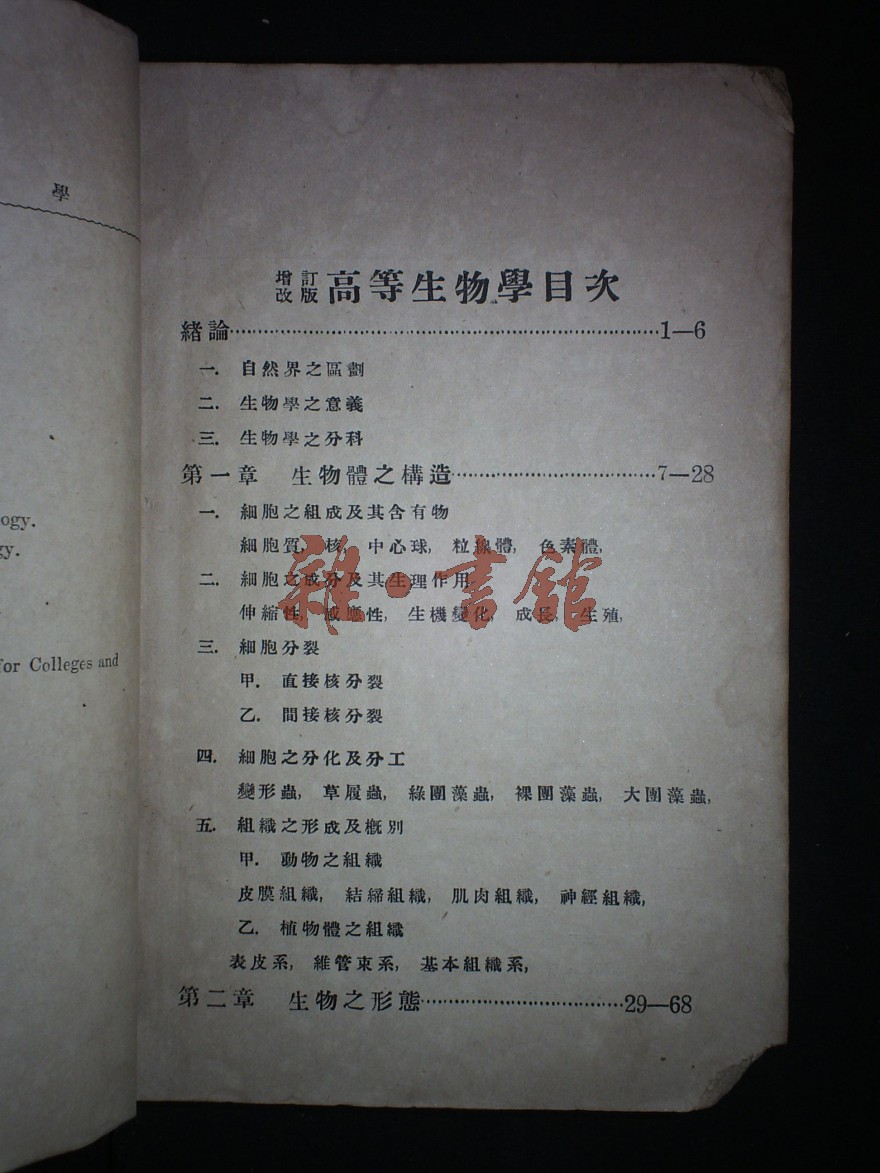 學
ogy.
gy.
for Colleges and
增訂改版 高等生物學目次
緒論……1—6
一．自然界之區劃
二．生物學之意義
三．生物學之分科
第一章 生物體之構造……7—28
一．細胞之組成及其含有物
細胞質，核，中心球，粒線體，色素體，
二．細胞之成分及其生理作用
伸縮性，感應性，生機變化，成長，生殖，
三．細胞分裂
甲．直接核分裂
乙．間接核分裂
四．細胞之分化及分工
變形蟲，草履蟲，綠團藻蟲，裸團藻蟲，大團藻蟲，
五．組織之形成及概別
甲．動物之組織
皮膜組織，結締組織，肌肉組織，神經組織，
乙．植物體之組織
表皮系，維管束系，基本組織系，
第二章 生物之形態……29—68
雜·書館